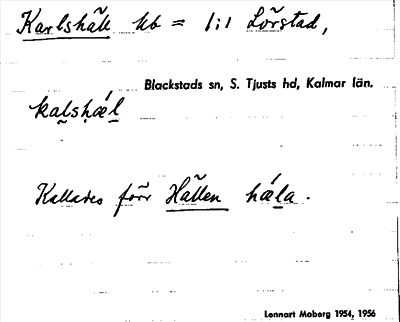 Karlshäll hb = 1:1 Lörstad,
Blackstads sn, S. Tjusts hd, Kalmar län.
kalshǽl
Kallades förr Hällen hǽla.
Lennart Moberg 1954, 1956